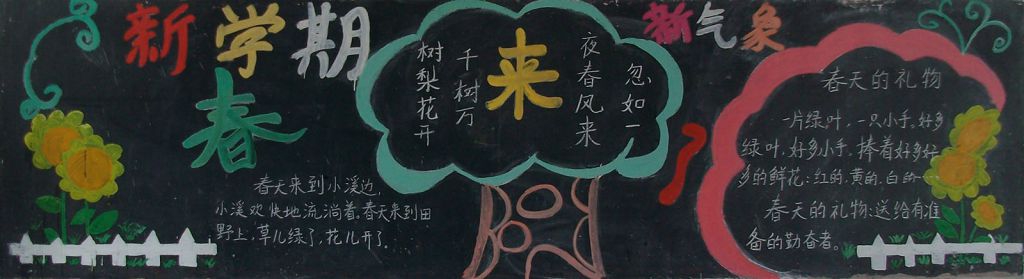 新学期
新气象
春
来
了
忽如一
夜春风来
千树万
树梨花开
春天来到小溪边，
小溪欢快地流淌着。春天来到田
野上，草儿绿了，花儿开了。
春天的礼物
一片绿叶，一只小手。好多
绿叶，好多小手，捧着好多好
多的鲜花：红的、黄的、白的…
春天的礼物：送给有准
备的勤奋者。